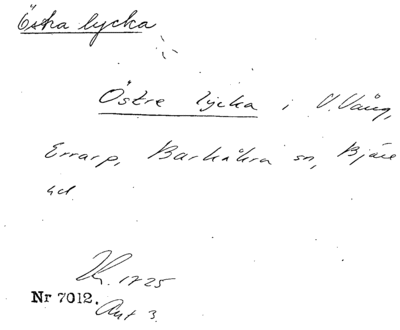 Östra lycka
Östre lycka i V. Vång,
Errarp, Barkåkra sn, Bjäre
hd.
1725
Nr 7012. Akt 3